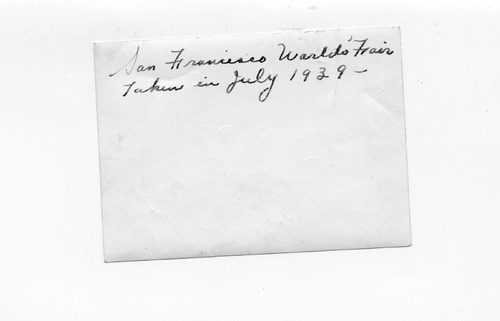 San Francisco Worlds' Fair
Taken in July 1939 -